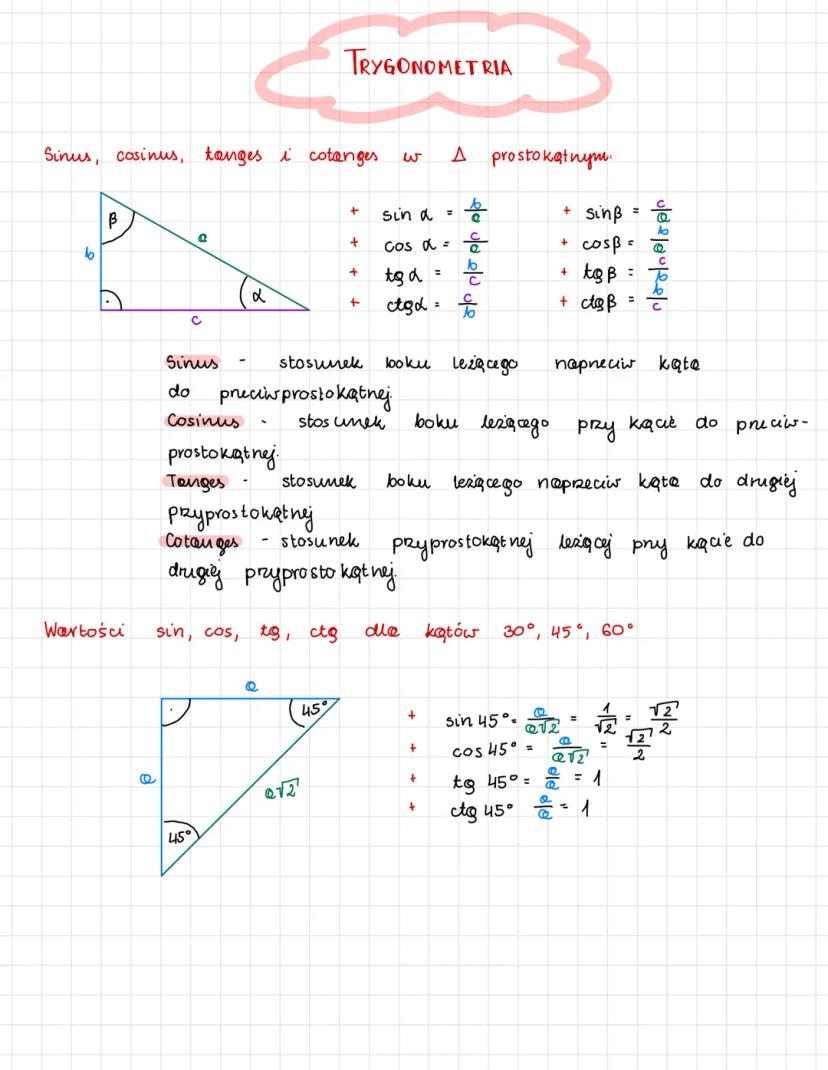 TRYGONOMETRIA
Sinus, cosinus, tanges i cotanges w Δ prostokątnym.
β
a
b
α
c
+ sin α = b/a
+ cos α = c/a
+ tg α = b/c
+ ctgα = c/b
+ sinβ = c/a
+ cosβ = b/a
+ tg β = c/b
+ ctgβ = b/c
Sinus - stosunek boku leżącego naprzeciw kąta
do przeciwprostokątnej.
Cosinus - stosunek boku leżącego przy kącie do przeciw-
prostokątnej.
Tanges - stosunek boku leżącego naprzeciw kąta do drugiej
przyprostokątnej
Cotanges - stosunek przyprostokątnej leżącej przy kącie do
drugiej przyprostokątnej.
Wartości sin, cos, tg, ctg dla kątów 30°, 45°, 60°
a
45°
a
a√2
45°
+ sin 45° = a/a√2 = 1/√2 = √2/2
+ cos 45° = a/a√2 = √2/2
+ tg 45° = a/a = 1
+ ctg 45° a/a = 1